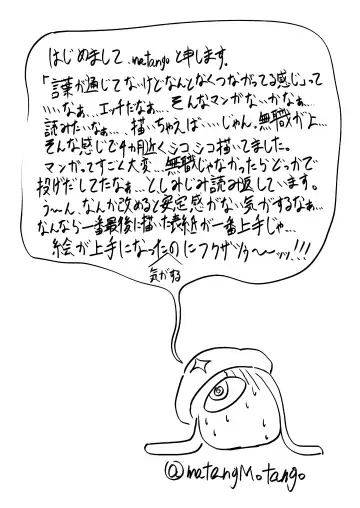 はじめまして、matangoと申します。
「言葉が通じてないけどなんとなくつながってる感じ」って
いいなぁ…エッチだなぁ…そんなマンガないかなぁ…
読みたいなぁ…描いちゃえばいいじゃん。無職がよ…
そんな感じで4カ月近くシコシコ描いてました。
マンガってすごく大変…無職じゃなかったらどっかで
投げだしてたなぁ…としみじみ読み返しています。
う〜ん、なんか改めると安定感がない気がするなぁ…
なんなら一番最後に描いた表紙が一番上手じゃ…
絵が上手になったのにフクザツゥ〜〜ッ!!!
気がする
@matangMotango